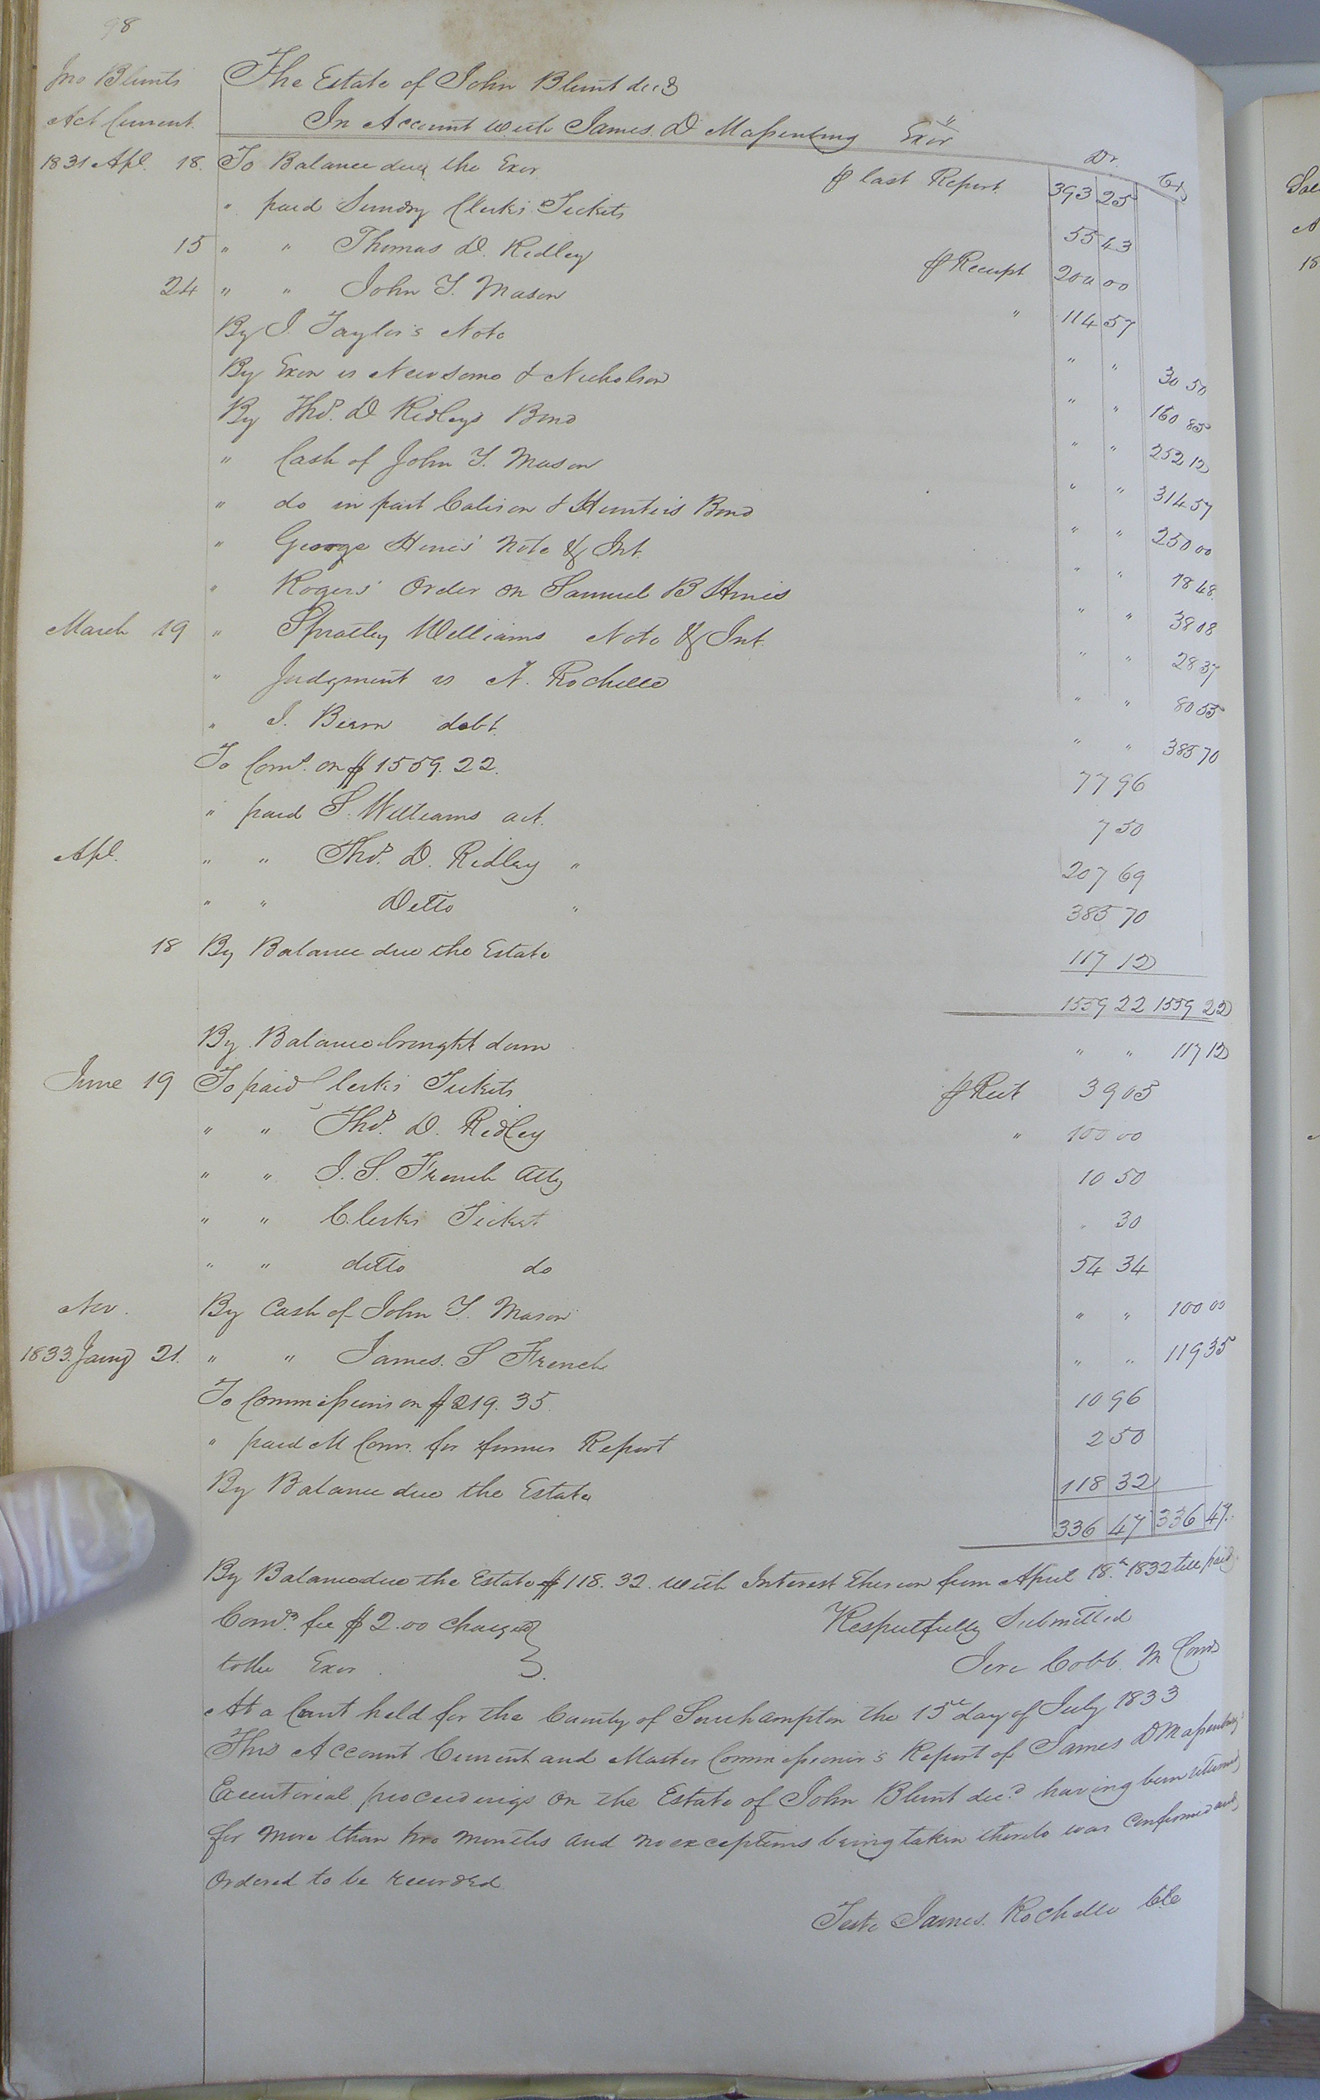 98
Jno Blunts The Estate of John Blunt decd
Act Current In Account with James D Massenburg Exor Dr. Cr
1831 Apl. 18. To Balance due the Exor ⅌ last Report 393 25
" paid Sundry Clerks Tickets 55 43
15 " " Thomas D. Ridley ⅌ Receipt 200 00
24 " " John Y. Mason " 114 57
By J. Taylor's Note " " 30 50
By Exon vs Newsome & Nicholson " " 160 85
By Thos. D Ridleys Bond " " 252 12
" Cash of John Y. Mason " " 314 57
" do in part & Hunter's Bond " " 250 00
" George Hines' Note & Int. " " 18 48
" Rogers' Order on Samuel B Hines " " 38 08
March 19 " Spratley Williams Note & Int. " " 28 37
" Judgment vs N. Rochelle " " 80 55
" J. debt. " " 385 70
To Coms. on $1559.22. 77 96
" paid S. Williams act. 7 50
Apl. " " Thos. D. Ridley " 207 69
" " Ditto " 385 70
18 By Balance due the Estate 117 12
1559 22 1559 22
By Balance brought down " " 117 12
June 19 To paid Clerks Tickets ⅌ Rect 39 05
" " Thos. D. Ridley " 100 00
" " J. S. French Atty 10 50
" " Clerks Ticket " 30
" " ditto do 54 34
Nov. By Cash of John Y. Mason " " 100 00
1833 Jany 21. " " James. S French " " 119 35
To Commissions on $219.35. 10 96
" paid M Comr. for former Report 2 50
By Balance due the Estate 118 32
336 47 336 47.
By Balance due the Estate $118.32. with Interest thereon from April 18th 1832 till paid.
Comrs. fee $2.00 charged Respectfully Submitted
to the Exor. Jere Cobb. M Comr
At a Court held for the County of Southampton the 15th day of July 1833
This Account Current and Master Commissioner's Report of James D Massenburg's
Executorial proceedings on the Estate of John Blunt decd. having been returned
for more than two months and no exceptions being taken thereto was confirmed and
Ordered to be recorded
Teste James. Rochelle Clk